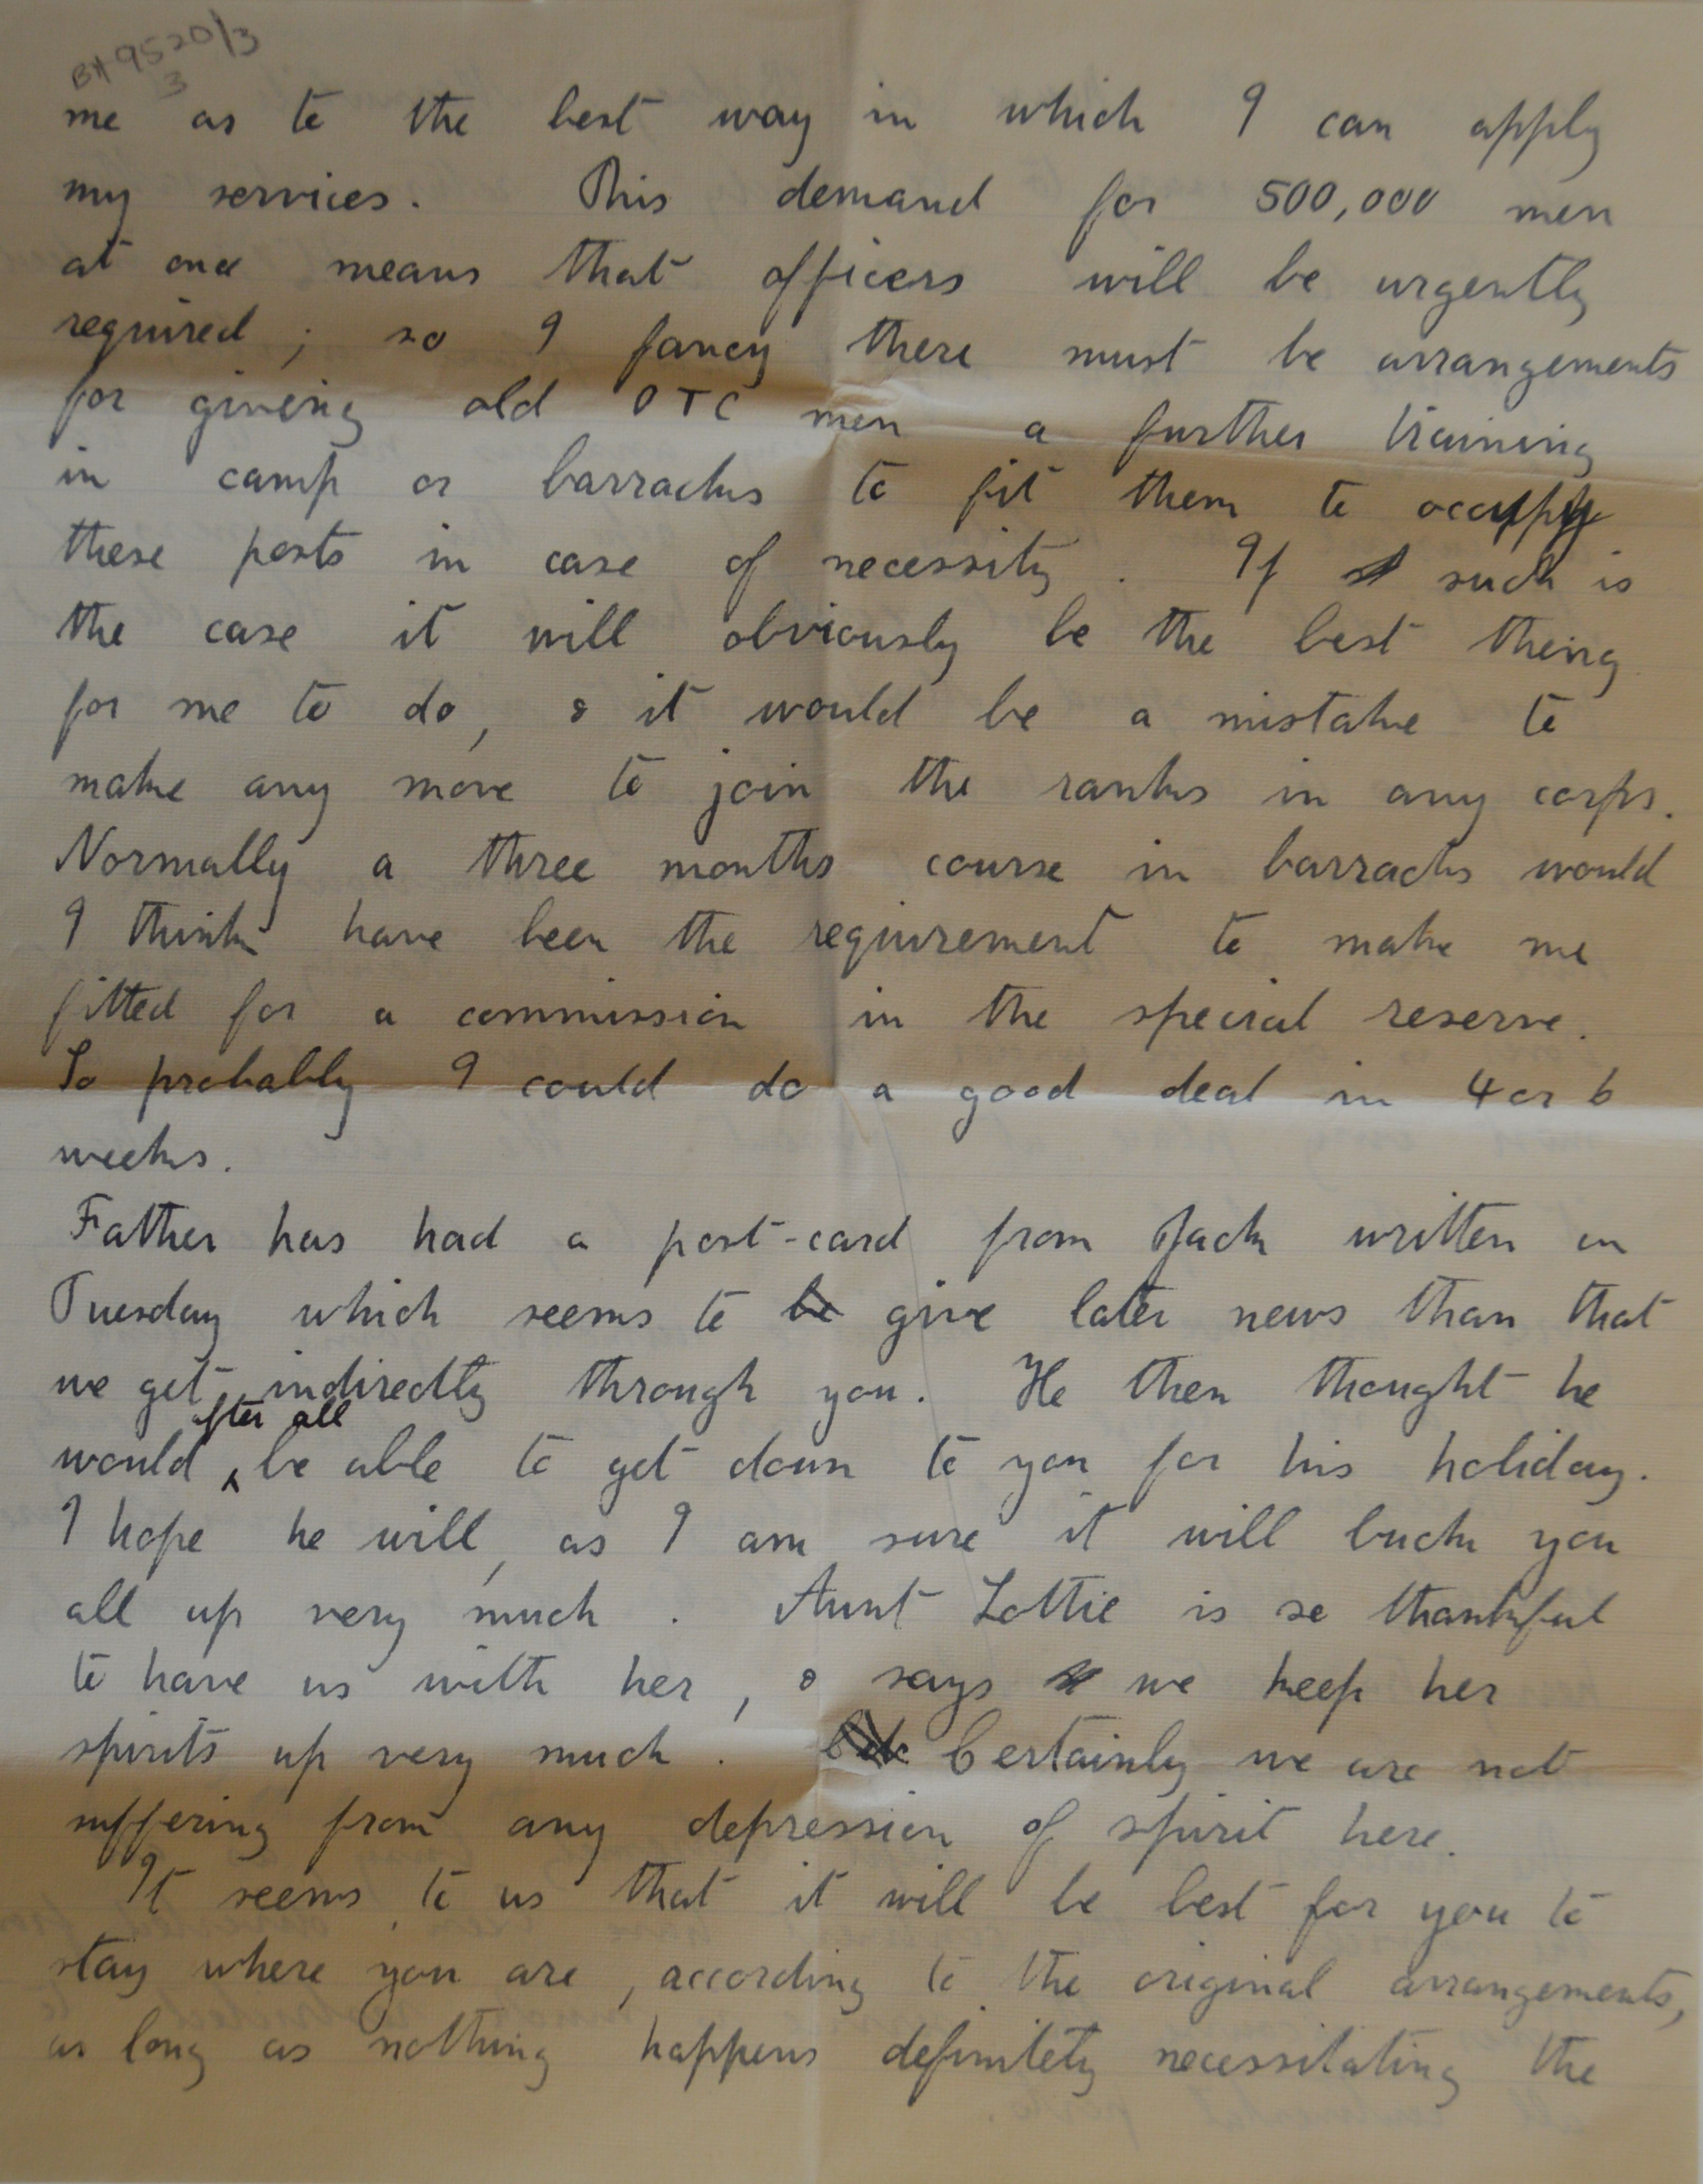 BH 9520/3
3
me as to the best way in which I can apply
my services. This demand for 500,000 men
at once means that officers will be urgently
required ; so I fancy there must be arrangements
for giving old OTC men a further training
in camp or barracks to fit them to occupy
these posts in case of necessity . If such is
the case it will obviously be the best thing
for me to do, & it would be a mistake to
make any move to join the ranks in any corps.
Normally a three months course in barracks would
I think have been the requirement to make me
fitted for a commission in the special reserve.
So probably I could do a good deal in 4 or 6
weeks.
Father has had a post-card from Jack written on
Tuesday which seems to be give later news than that
we get indirectly through you. He then thought he
after all
would ^ be able to get down to you for his holiday.
I hope he will, as I am sure it will buck you
all up very much . Aunt Lottie is so thankful
to have us with her, & says we keep her
spirits up very much . Certainly we are not
suffering from any depression of spirit here.
It seems to us that it will be best for you to
stay where you are, according to the original arrangements,
as long as nothing happens definitely necessitating the